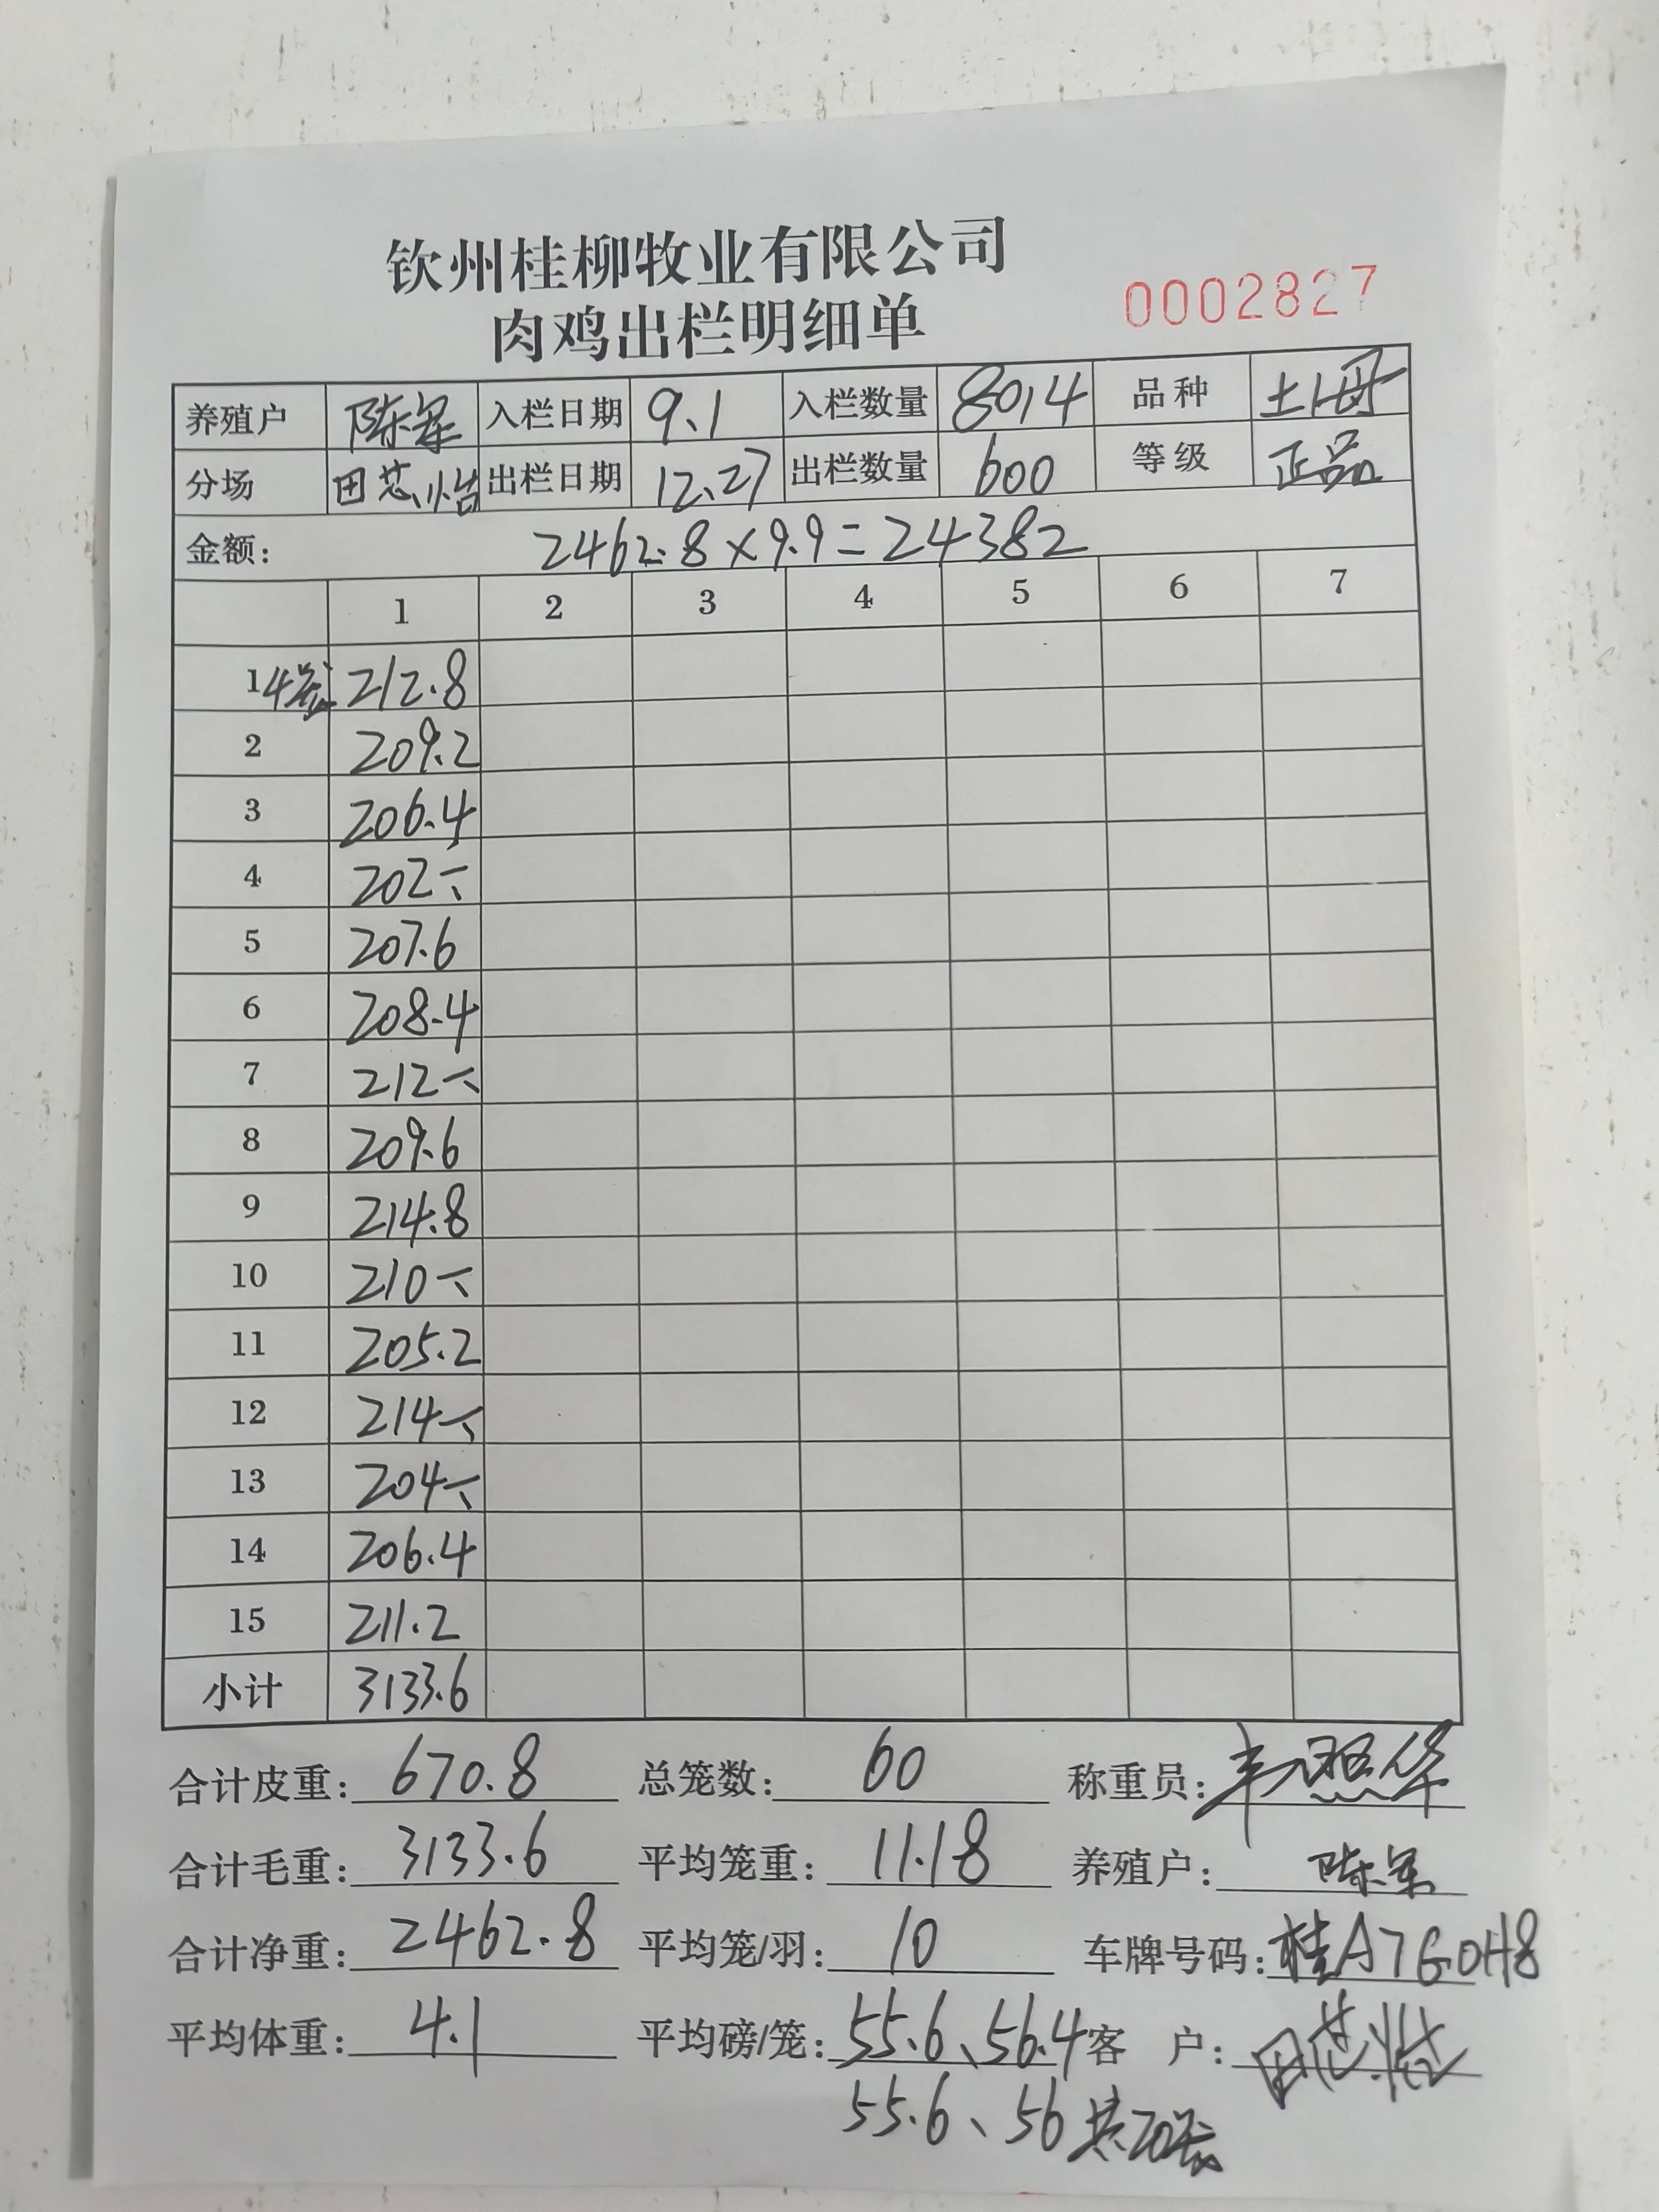 钦州桂柳牧业有限公司
肉鸡出栏明细单 0002827
养殖户 陈军 入栏日期 9.1 入栏数量 8014 品种 土1母
分场 田芯怡 出栏日期 12.27 出栏数量 600 等级 正品
金额: 2462.8×9.9=24382
1 2 3 4 5 6 7
1 4笼 212.8
2 209.2
3 206.4
4 202
5 207.6
6 208.4
7 212
8 209.6
9 214.8
10 210
11 205.2
12 214
13 204
14 206.4
15 211.2
小计 3133.6
合计皮重: 670.8 总笼数: 60 称重员:
合计毛重: 3133.6 平均笼重: 11.18 养殖户: 陈军
合计净重: 2462.8 平均笼/羽: 10 车牌号码: 桂A7G0H8
平均体重: 4.1 平均磅/笼: 55.6、56.4 客 户: 田芯怡
55.6、56 共20